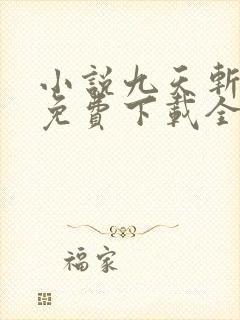 小說九天斬
免費下載全
福家